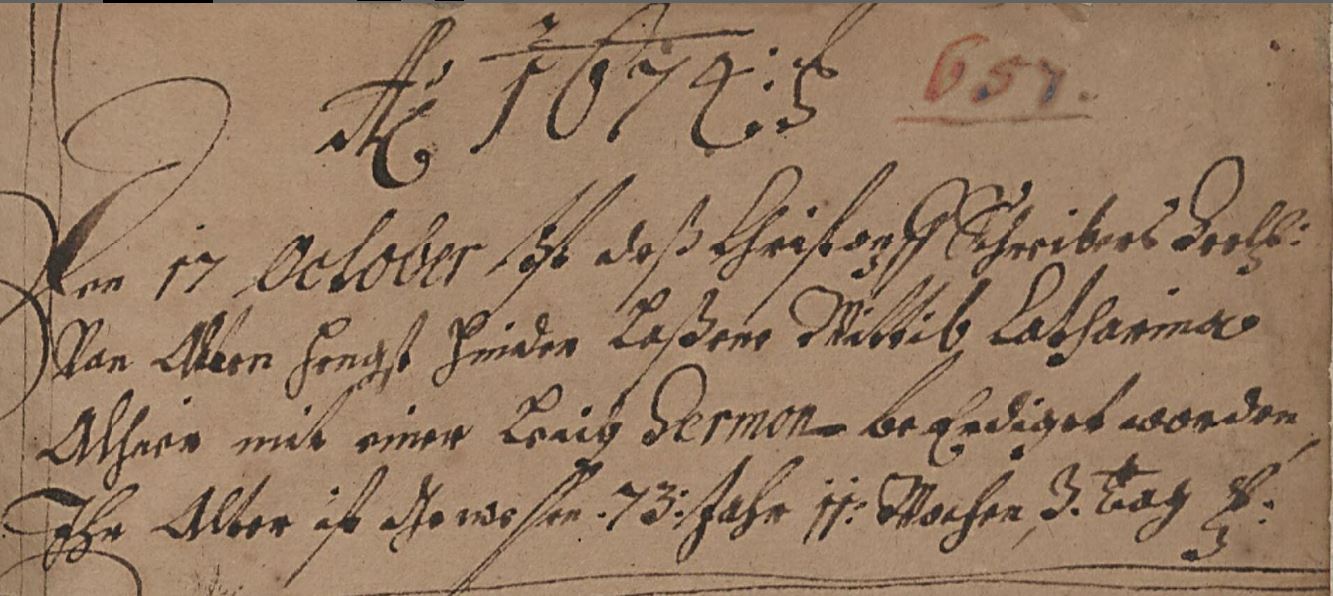 Aō 1674:
657.
Den 17 October Ist deß Christoff Schreibers Seelg:
Von Alten hengst hinder Laßene Wittib Catharina
Alhier mit einer Leich Sermon beErdiget worden
Ihr Alter ist Gewessen :73: Jahr 11: Wochen 3. tag